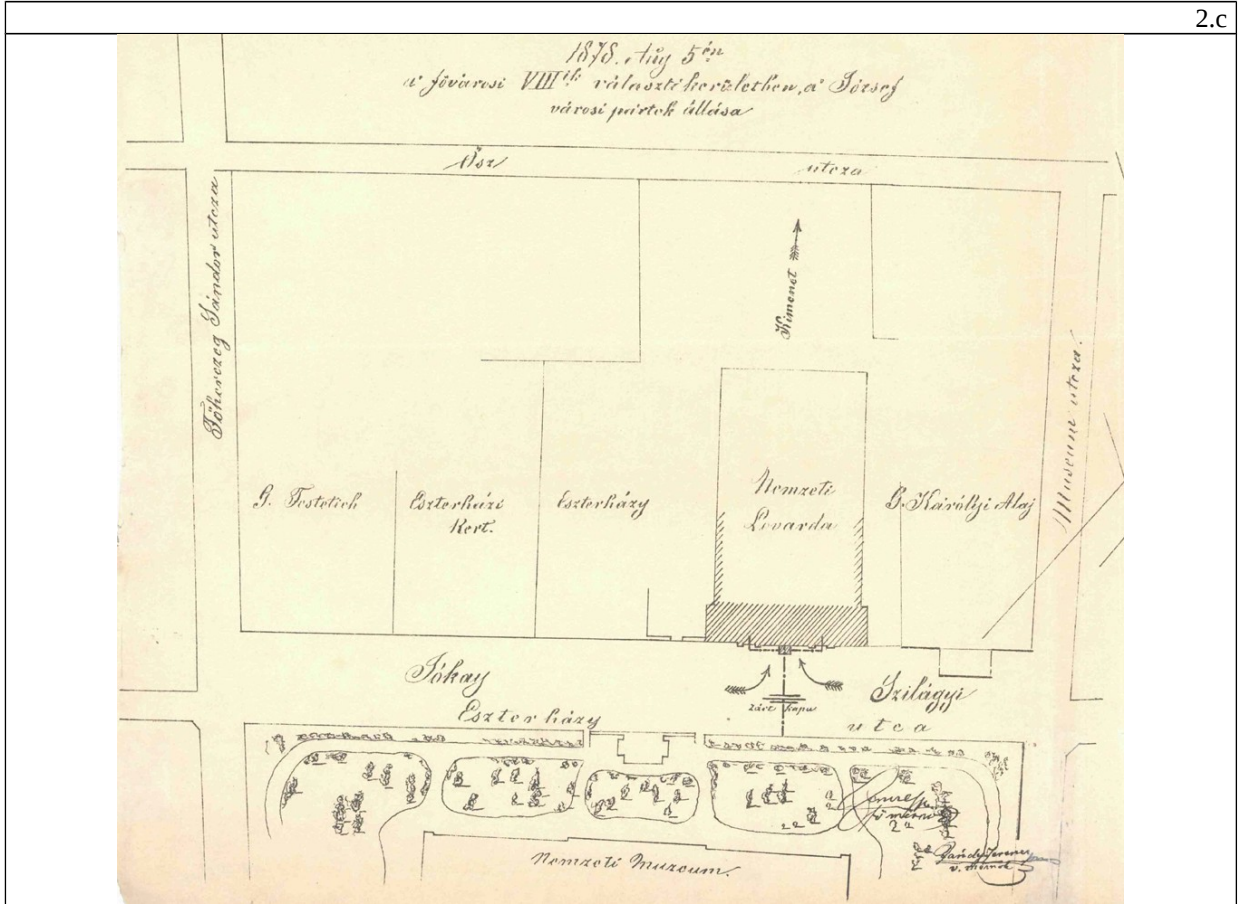 2.c
1878. Aug 5én
a' fővárosi VIIIik választó kerületben, a' József
városi pártok állása
Ősz utcza
Főherczeg Sándor utcza
Kimenet
Museum utcza.
G. Festetich
Eszterházi
Kert.
Eszterházy
Nemzeti
Lovarda
G. Károlyi Alaj
Jókay
Szilágyi
zárt kapu
Eszterházy utca
Nemzeti Muzeum.